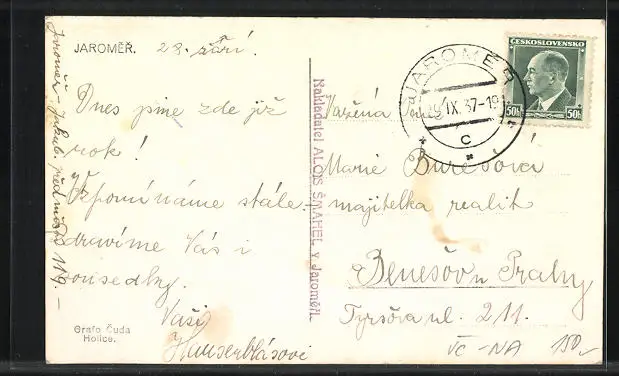 JAROMĚŘ. 23. září.
Dnes jsme zde již
rok!
Vzpomínáme stále
zdravíme Vás i
sousedky.
Vaši
Hauserblásovi
Jaroměř - Jakub. předměstí 119. -
Grafo Čuda
Holice.
Nakladatel ALOIS ŠMAHEL v Jaroměři.
ČESKOSLOVENSKO
50h 50h
JAROMĚŘ
IX. 37-19
C
Vážená
Marie Burešová
majitelka realit
Benešov u Prahy
Tyršova ul. 211.
VČ-NA 150,-